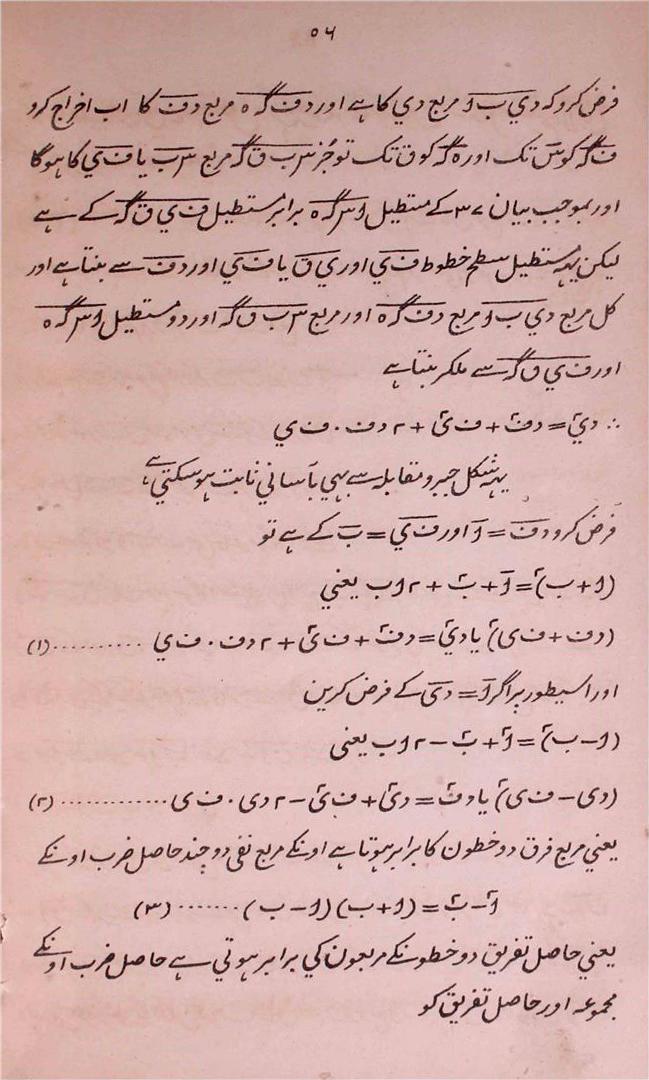 ٥٦
فرض کرو که دي ب و مربع دي کا هے اور دف گ ه مربع دف کا اب اخراج کرو
ف گ کو س تک اور ه گ کو ق تک تو جُز س ب ق گ مربع س ب یا ف ي کا هوگا
اور بموجب بیان ۳۷ کے مستطیل و س گ ه برابر مستطیل ف ي ق گ کے هے
لیکن یهه مستطیل سطح خطوط ف ي اور ي ق یا ف ي اور دف سے بنتا هے اور
کل مربع دي ب و مربع دف گ ه اور مربع س ب ق گ اور دو مستطیل و س گ ه
اور ف ي ق گ سے ملکر بنتا هے
∴ دي۲ = دف۲ + ف ي۲ + ۲ دف . ف ي
یهه شکل جبر و مقابله سے بهي بآساني ثابت هو سکتي هے
فرض کرو دف = ا اور ف ي = ب کے هے تو
(ا + ب)۲ = ا۲ + ب۲ + ۲ ا ب یعني
(دف + ف ی)۲ یا دي۲ = دف۲ + ف ی۲ + ۲ دف . ف ي .......... (۱)
اور اسیطور پر اگر ا = دی کے فرض کرین
(ا - ب)۲ = ا۲ + ب۲ - ۲ ا ب یعنی
(دی - ف ی)۲ یا دف۲ = دی۲ + ف ی۲ - ۲ دی . ف ی ............ (۲)
یعني مربع فرق دو خطون کا برابر هوتا هے اونکے مربع نفی دو چند حاصل ضرب اونکے
ا۲ - ب۲ = (ا + ب) (ا - ب) ....... (۳)
یعني حاصل تفریق دو خطونکے مربعون کي برابر هوتي هے حاصل ضرب اونکے
مجموعه اور حاصل تفریق کو